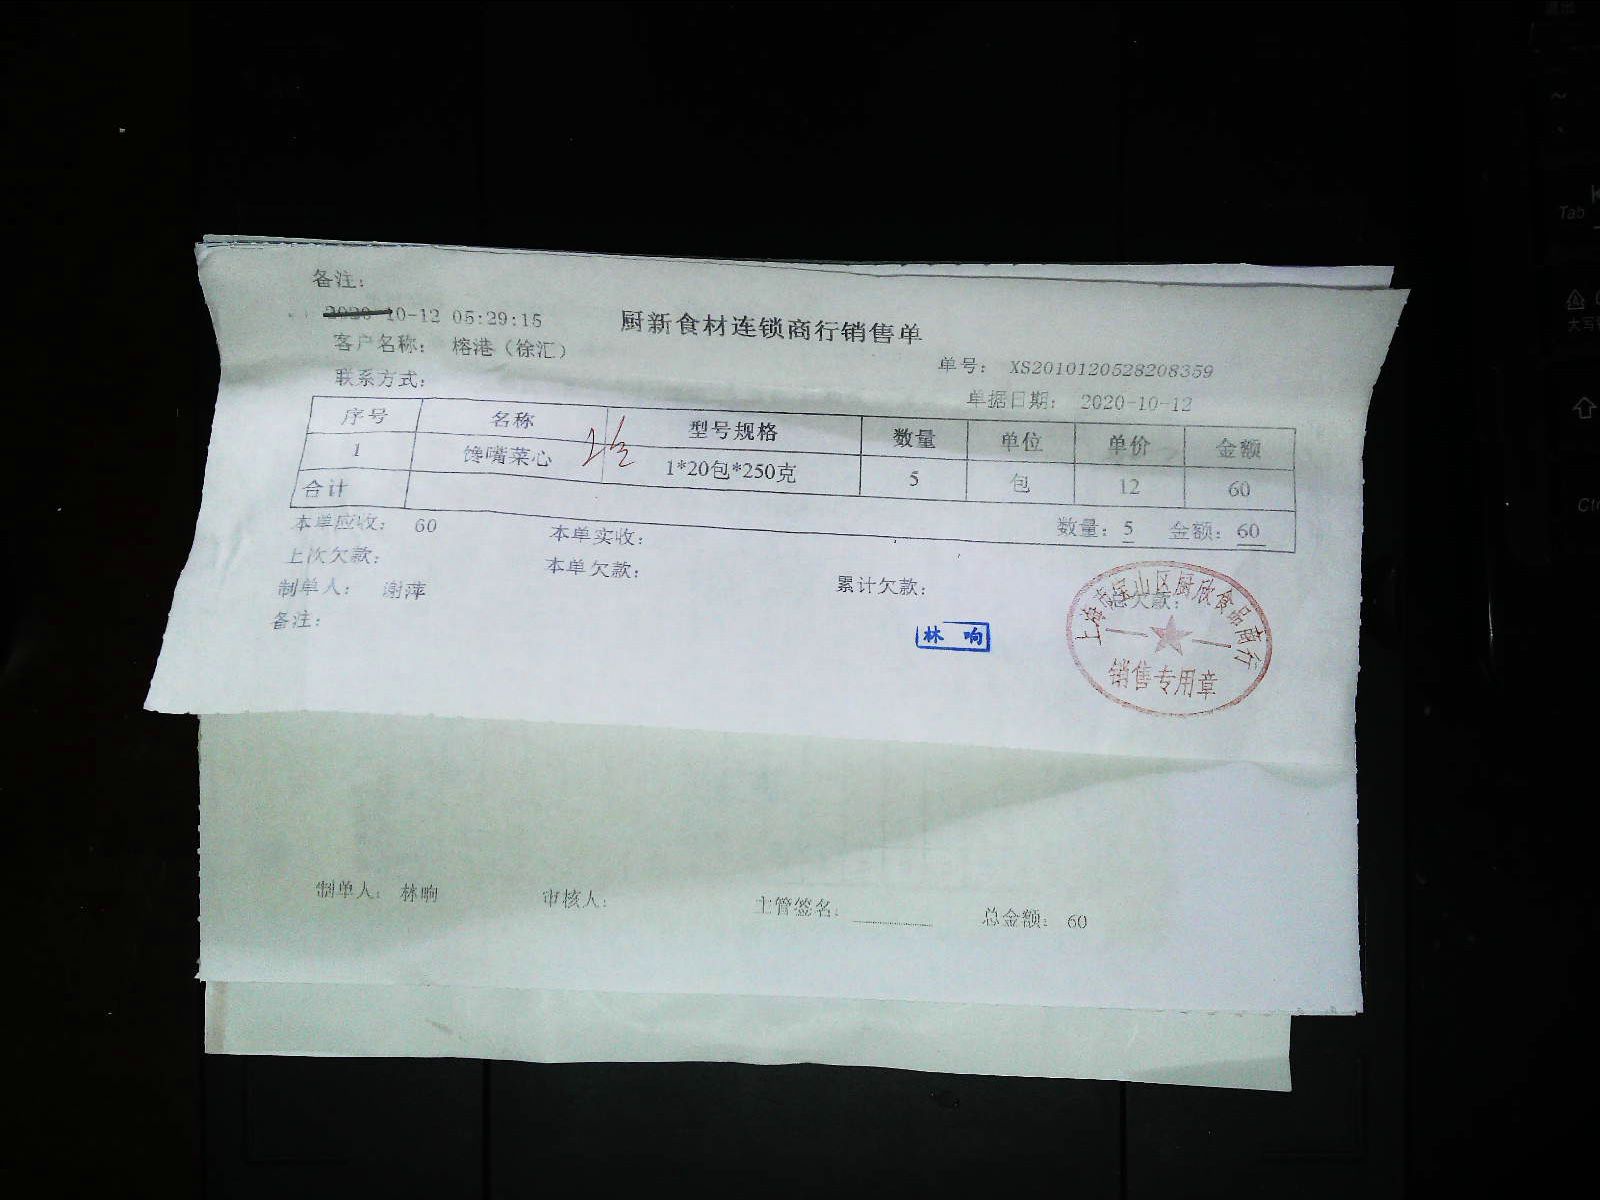 备注：
2020-10-12 05:29:15
厨新食材连锁商行销售单
客户名称： 榕港（徐汇）
单号： XS2010120528208359
联系方式：
单据日期： 2020-10-12
序号 名称 型号规格 数量 单位 单价 金额
1 馋嘴菜心 1*20包*250克 5 包 12 60
合计
数量：5 金额：60
本单应收： 60 本单实收：
上次欠款： 本单欠款： 累计欠款： 总欠款：
制单人： 谢萍
备注：
林 响
上海市宝山区厨欣食品商行
销售专用章
制单人： 林响 审核人： 主管签名： 总金额： 60
Tab